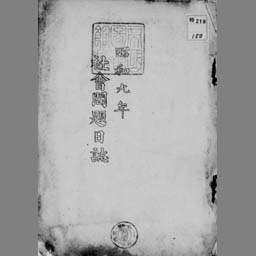 昭和九年
社會問題日誌
特219
188